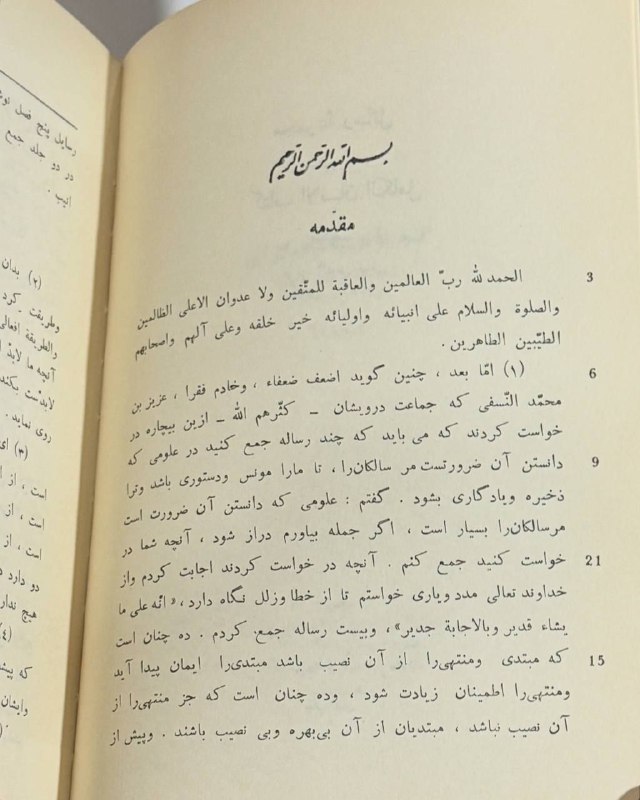 بسم الله الرحمن الرحیم
مقدّمه
الحمد لله ربّ العالمین والعاقبة للمتّقین ولا عدوان الاعلی الظالمین
3
والصلوة والسلام علی انبیائه واولیائه خیر خلقه وعلی آلهم واصحابهم
الطیّبین الطاهرین .
(١) امّا بعد ، چنین گوید اضعف ضعفاء ، وخادم فقرا ، عزیز بن
6
محمّد النّسفی که جماعت درویشان ـ کثّرهم الله ـ ازین بیچاره در
خواست کردند که می باید که چند رساله جمع کنید در علومی که
دانستن آن ضرورتست مر سالکان‌را ، تا مارا مونس ودستوری باشد وترا
9
ذخیره ویادگاری بشود . گفتم : علومی که دانستن آن ضرورت است
مرسالکان‌را بسیار است ، اگر جمله بیاورم دراز شود ، آنچه شما در
خواست کنید جمع کنم . آنچه در خواست کردند اجابت کردم واز
21
خداوند تعالی مدد ویاری خواستم تا از خطا وزلل نگاه دارد ، « انّه علی ما
یشاء قدیر وبالاجابة جدیر» ، وبیست رساله جمع کردم . ده چنان است
که مبتدی ومنتهی‌را از آن نصیب باشد مبتدی‌را ایمان پیدا آید
15
ومنتهی‌را اطمینان زیادت شود ، وده چنان است که جز منتهی‌را از
آن نصیب نباشد ، مبتدیان از آن بی‌بهره وبی نصیب باشند . وپیش از
رسایل پنج فصل
در دو جلد جمع
(٢) بدان
وطریقت
والطریقة افعالی
آنچه ما لابدّ
روی نماید .
(٣) ای
است ، از
است ، از
است ، از
دو دارد
هیچ ندارد
(٤)
وایشان